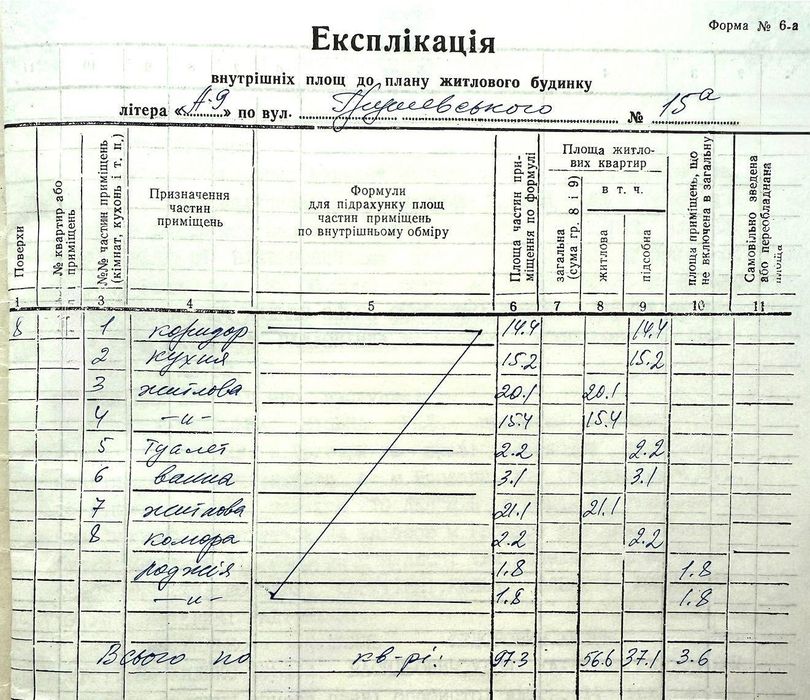 Форма № 6-а
Експлікація
внутрішніх площ до плану житлового будинку
літера «А-9» по вул. № 15а
Поверхи
№ квартир або приміщень
№№ частин приміщень (кімнат, кухонь і т. п.)
Призначення частин приміщень
Формули для підрахунку площ частин приміщень по внутрішньому обміру
Площа частин приміщення по формулі
Площа житлових квартир
загальна (сума гр. 8 і 9)
в т. ч.
житлова
підсобна
площи приміщень, що не включена в загальну
Самовільно зведена або переобладнана площа
1 3 4 5 6 7 8 9 10 11
8 1 коридор 14.4 14.4
2 кухня 15.2 15.2
3 житлова 20.1 20.1
4 —и— 15.4 15.4
5 туалет 2.2 2.2
6 ванна 3.1 3.1
7 житлова 21.1 21.1
8 комора 2.2 2.2
лоджія 1.8 1.8
—и— 1.8 1.8
Всього по кв-рі: 97.3 56.6 37.1 3.6